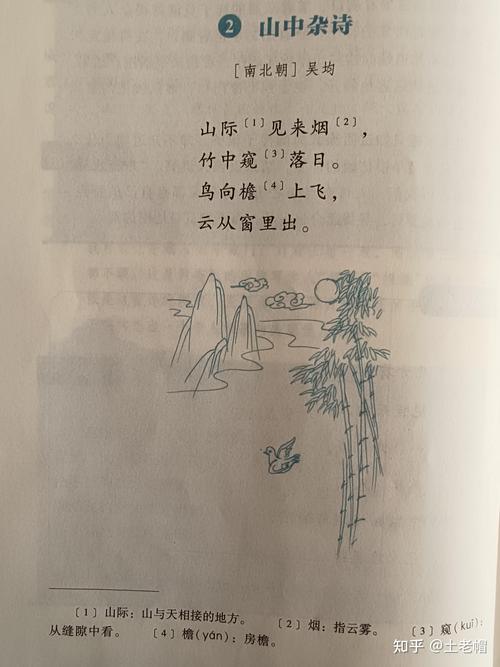 2 山中杂诗
[南北朝]吴均
山际[1]见来烟[2],
竹中窥[3]落日。
鸟向檐[4]上飞,
云从窗里出。
[1]山际:山与天相接的地方。 [2]烟:指云雾。 [3]窥(kuī):
从缝隙中看。 [4]檐(yán):房檐。
知乎 @土老帽